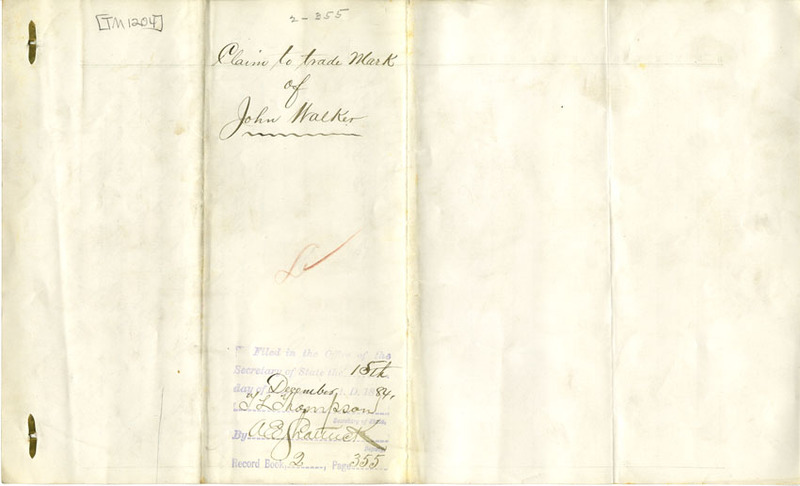 [TM1204]
2-355
Claim to trade Mark
of
John Walker
Filed in the Office of the
Secretary of State the 15th
day of Dezember A. D. 1884.
T L Thompson
Secretary of State.
By A E Shattuck
Deputy
Record Book 2, Page 355